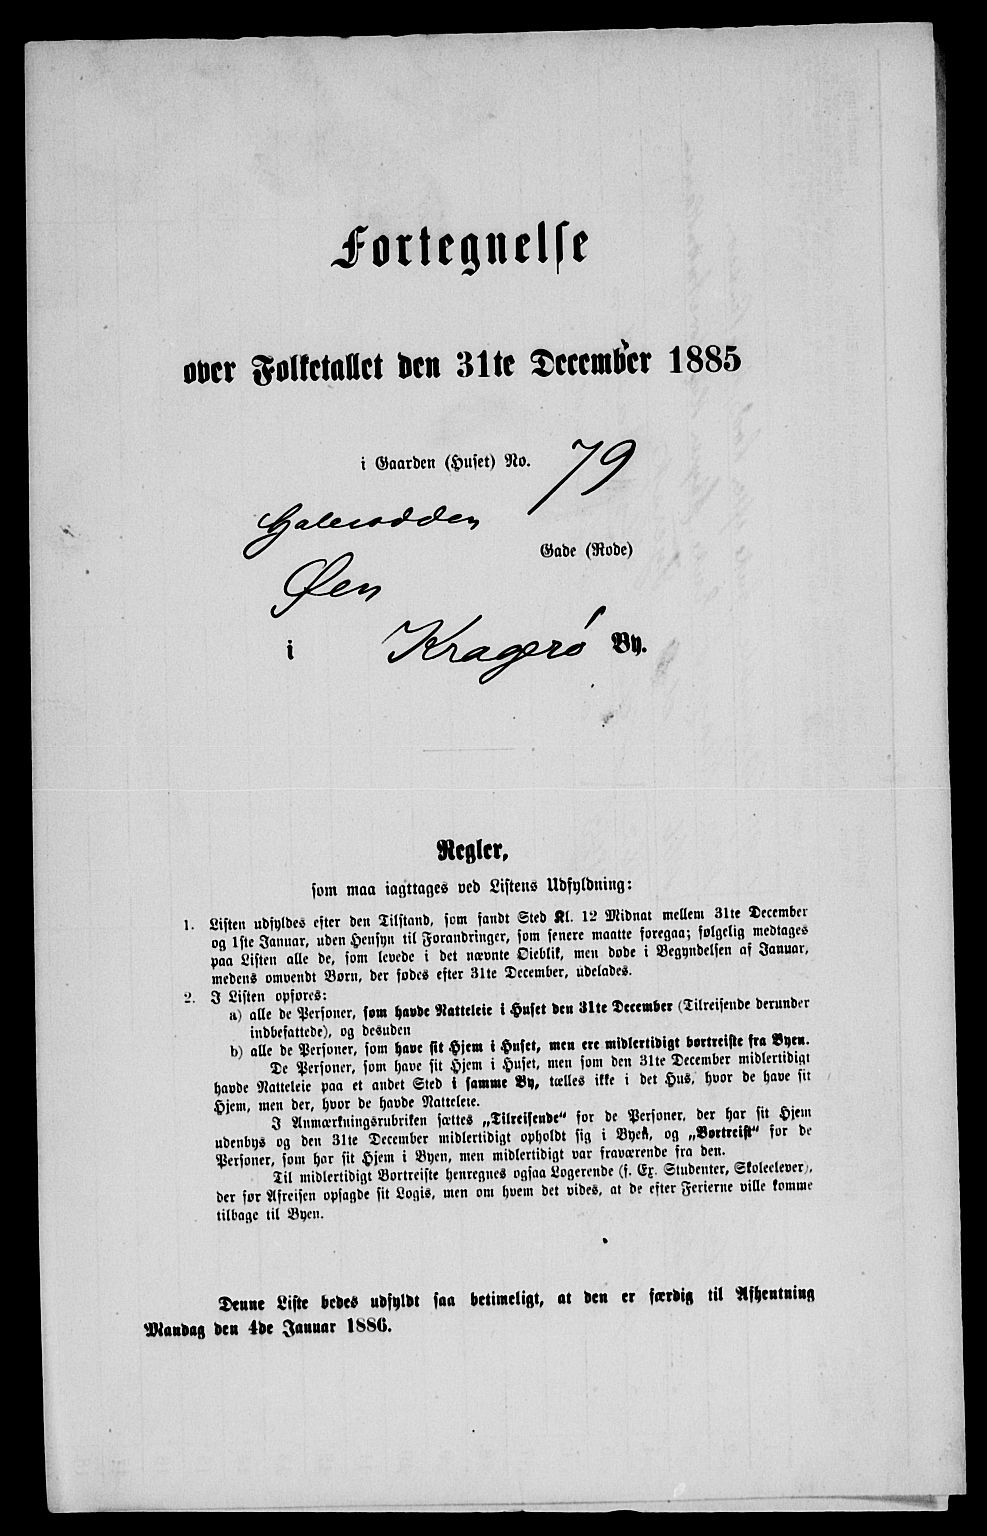 Fortegnelse
over Folketallet den 31te December 1885
i Gaarden (Huset) No. 79
Galeiodden
Gade (Rode)
Øen
i Kragerø By.
Regler,
som maa iagttages ved Listens Udfyldning:
1. Listen udfyldes efter den Tilstand, som fandt Sted Kl. 12 Midnat mellem 31te December
og 1ste Januar, uden Hensyn til Forandringer, som senere maatte foregaa; følgelig medtages
paa Listen alle de, som levede i det nævnte Øieblik, men døde i Begyndelsen af Januar,
medens omvendt Børn, der fødes efter 31te December, udelades.
2. I Listen opføres:
a) alle de Personer, som havde Natteleie i Huset den 31te December (Tilreisende derunder
indbefattede), og desuden
b) alle de Personer, som have sit Hjem i Huset, men ere midlertidigt bortreiste fra Byen.
De Personer, som have sit Hjem i Huset, men som den 31te December midlertidigt
havde Natteleie paa et andet Sted i samme By, tælles ikke i det Hus, hvor de have sit
Hjem, men der, hvor de havde Natteleie.
I Anmærkningsrubriken sættes „Tilreisende“ for de Personer, der har sit Hjem
udenbys og den 31te December midlertidigt opholdt sig i Byen, og „Bortreist“ for de
Personer, som har sit Hjem i Byen, men midlertidigt var fraværende fra den.
Til midlertidigt Bortreiste henregnes ogsaa Logerende (f. Ex. Studenter, Skoleelever),
der før Afreisen opsagde sit Logis, men om hvem det vides, at de efter Ferierne ville komme
tilbage til Byen.
Denne Liste bedes udfyldt saa betimeligt, at den er færdig til Afhentning
Mandag den 4de Januar 1886.